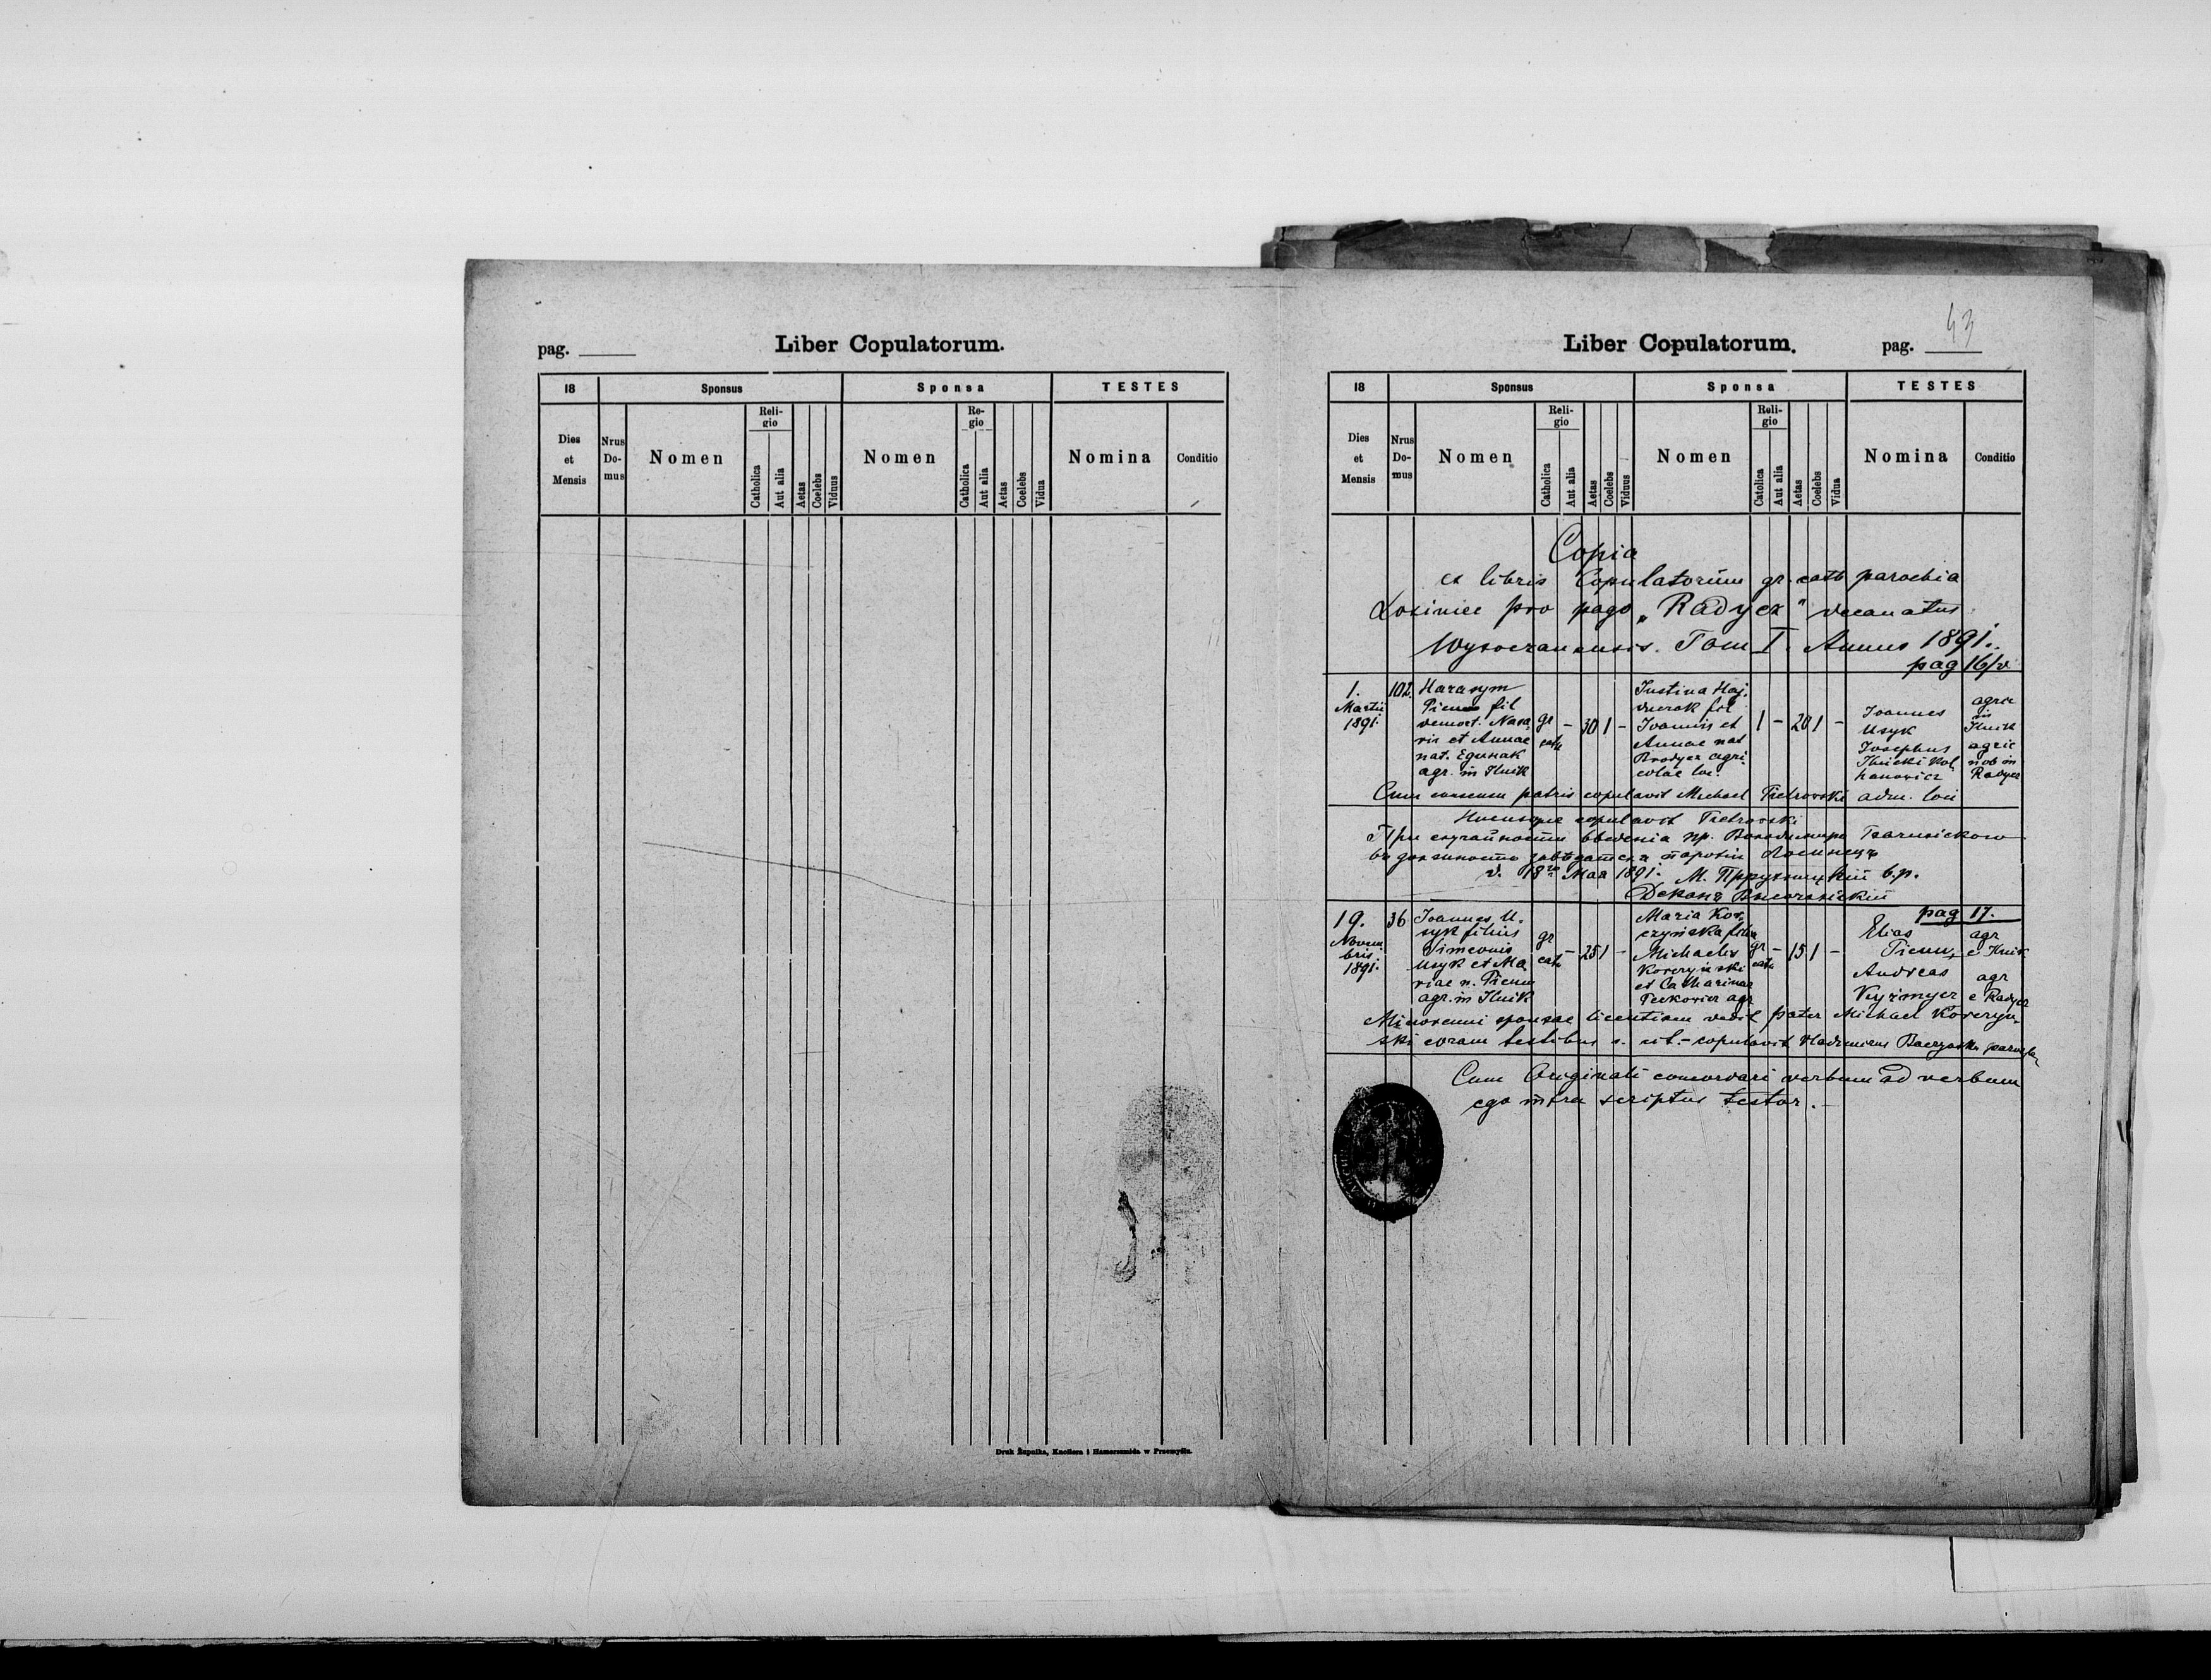 pag.
Liber Copulatorum.
18
Sponsus
Sponsa
TESTES
Dies
et
Mensis
Nrus
Do-
mus
Nomen
Reli-
gio
Catholica
Aut alia
Aetas
Coelebs
Viduus
Nomen
Re-
gio
Catholica
Aut alia
Aetas
Coelebs
Vidua
Nomina
Conditio
Druk Żupnika, Knollera i Hamerszmida w Przemyślu.
Liber Copulatorum.
pag. 43
18
Sponsus
Sponsa
TESTES
Dies
et
Mensis
Nrus
Do-
mus
Nomen
Reli-
gio
Catholica
Aut alia
Aetas
Coelebs
Viduus
Nomen
Reli-
gio
Catolica
Aut alia
Aetas
Coelebs
Vidua
Nomina
Conditio
Copia
ex libris Copulatorum gr. cath parochia
Łosiniec pro pago "Radycz" decanatus
Wysoczanensis. Tom I. Annus 1891.
pag 16/v
1.
Martii
1891.
102.
Harasym
Picun fil
demort. Naza
rii et Annae
nat.
agr. in Ilnik
gr
cath
-
30
1
-
Justina Haj
fil
Joannis et
Annae nat
Brodycz agri
colae loc.
1
-
20
1
-
Joannes
Usyk
Josephus
Ilnicki
agric
in
Ilnik
agric
nob in
Radycz
Cum consensu patris copulavit Michael Pietrowski adm. loci
copulavit Pietrowski
При введенія пр.
въ должность завѣдателя парохіи Лосинецъ
d. 18го Мая 1891. М. в.р.
Деканъ Височанскій
pag 17.
19.
Novem
bris
1891.
36
Joannes U.
syk filius
Simeonis
Usyk et Ma
riae n. Picun
agr. in Ilnik
gr
cath
-
25
1
-
Maria Kor
czyńska filia
Michaelis
Korczyński
et Catharinae
agr
gr
cath
-
15
1
-
Elias
Picun
Andreas
agr
e Ilnik
agr
e Radycz
Minorenni sponsae licentiam dedit pater Michael Korczyń-
ski coram testibus s. ut.- copulavit Vladimirus
Cum Originali concordari verbum ad verbum
ego infra scriptus testor.-